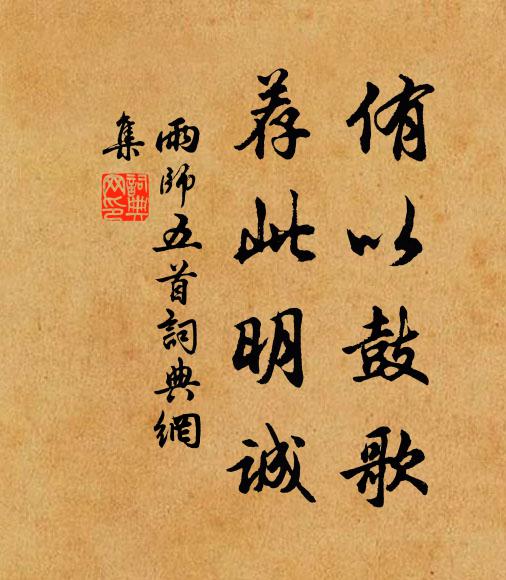 侑以鼓歌
荐此明誠
雨師五首詞典網
集
詞典
网印